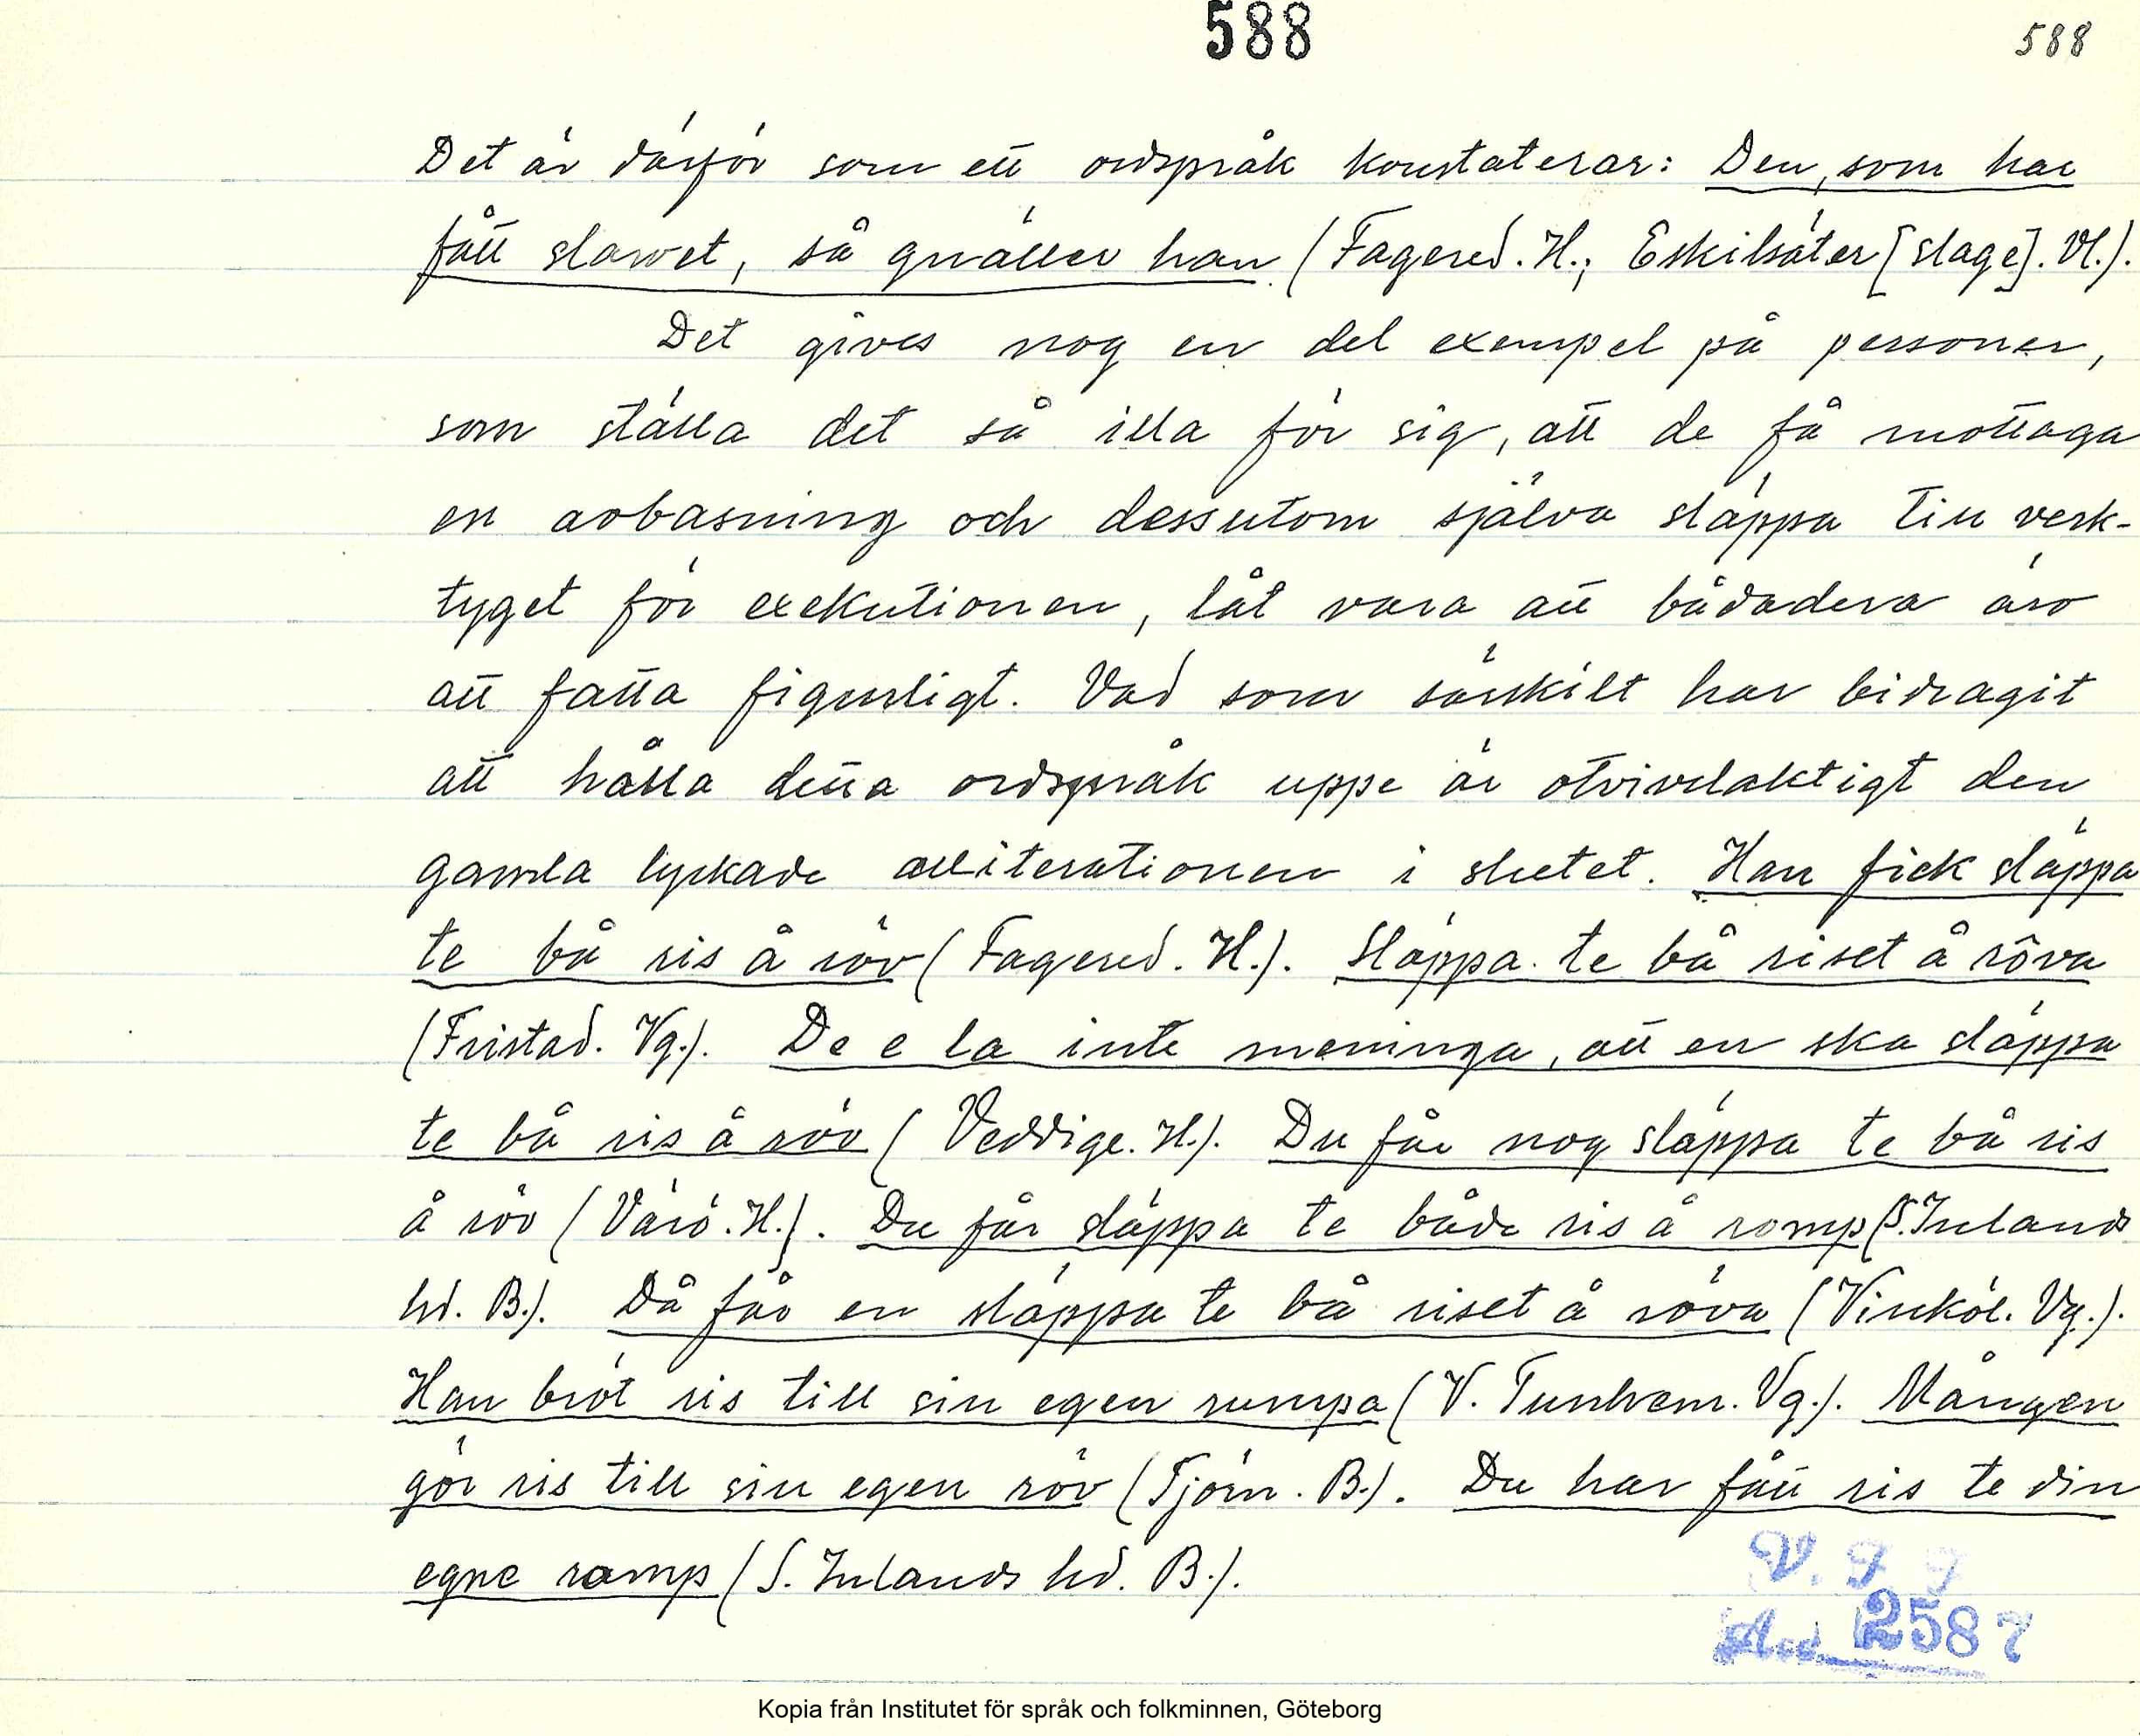 588
588
Det är därför som ett ordspråk konstaterar: Den, som har
fått slawet, så gnäller han (Fagered. H.; Eskilsäter [slage]. Vl.).
Det gives nog en del exempel på personer,
som ställa det så illa för sig, att de få mottaga
en avbasning och dessutom själva släppa till verk-
tyget för exekutionen, låt vara att bådadera äro
att fatta figurligt. Vad som särskilt har bidragit
att hålla detta ordspråk uppe är otvivelaktigt den
gamla lyckade alliterationen i slutet. Han fick släppa
te bå ris å röv (Fagered. H.). Släppa te bå riset å röva
(Fristad. Vg.). De e la inte meninga, att en ska släppa
te bå ris å röv (Veddige. H.). Du får nog släppa te bå ris
å röv (Värö. H.). Du får släppa te både ris å romp (S. Inlands
hd. B.). Då får en släppa te bå riset å röva (Vinköl. Vg.).
Han bröt ris till sin egen rumpa (V. Tunhem. Vg.). Mången
gör ris till sin egen röv (Tjörn. B.). Du har fått ris te din
egne romp (S. Inlands hd. B.).
V. F. F
Acc. 2587
Kopia från Institutet för språk och folkminnen, Göteborg